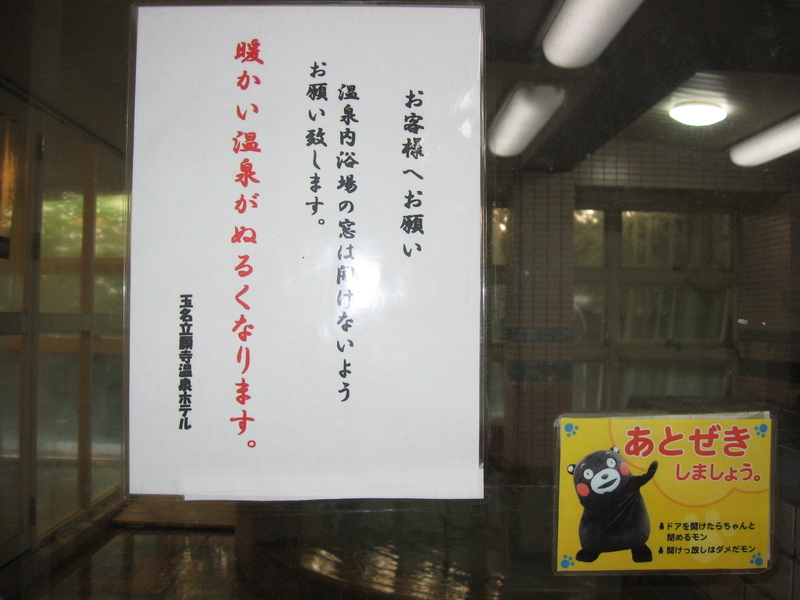 お客様へお願い
温泉内浴場の窓は開けないよう
お願い致します。
暖かい温泉がぬるくなります。
玉名立願寺温泉ホテル
あとぜき
しましょう。
ドアを開けたらちゃんと
閉めるモン
開けっ放しはダメだモン